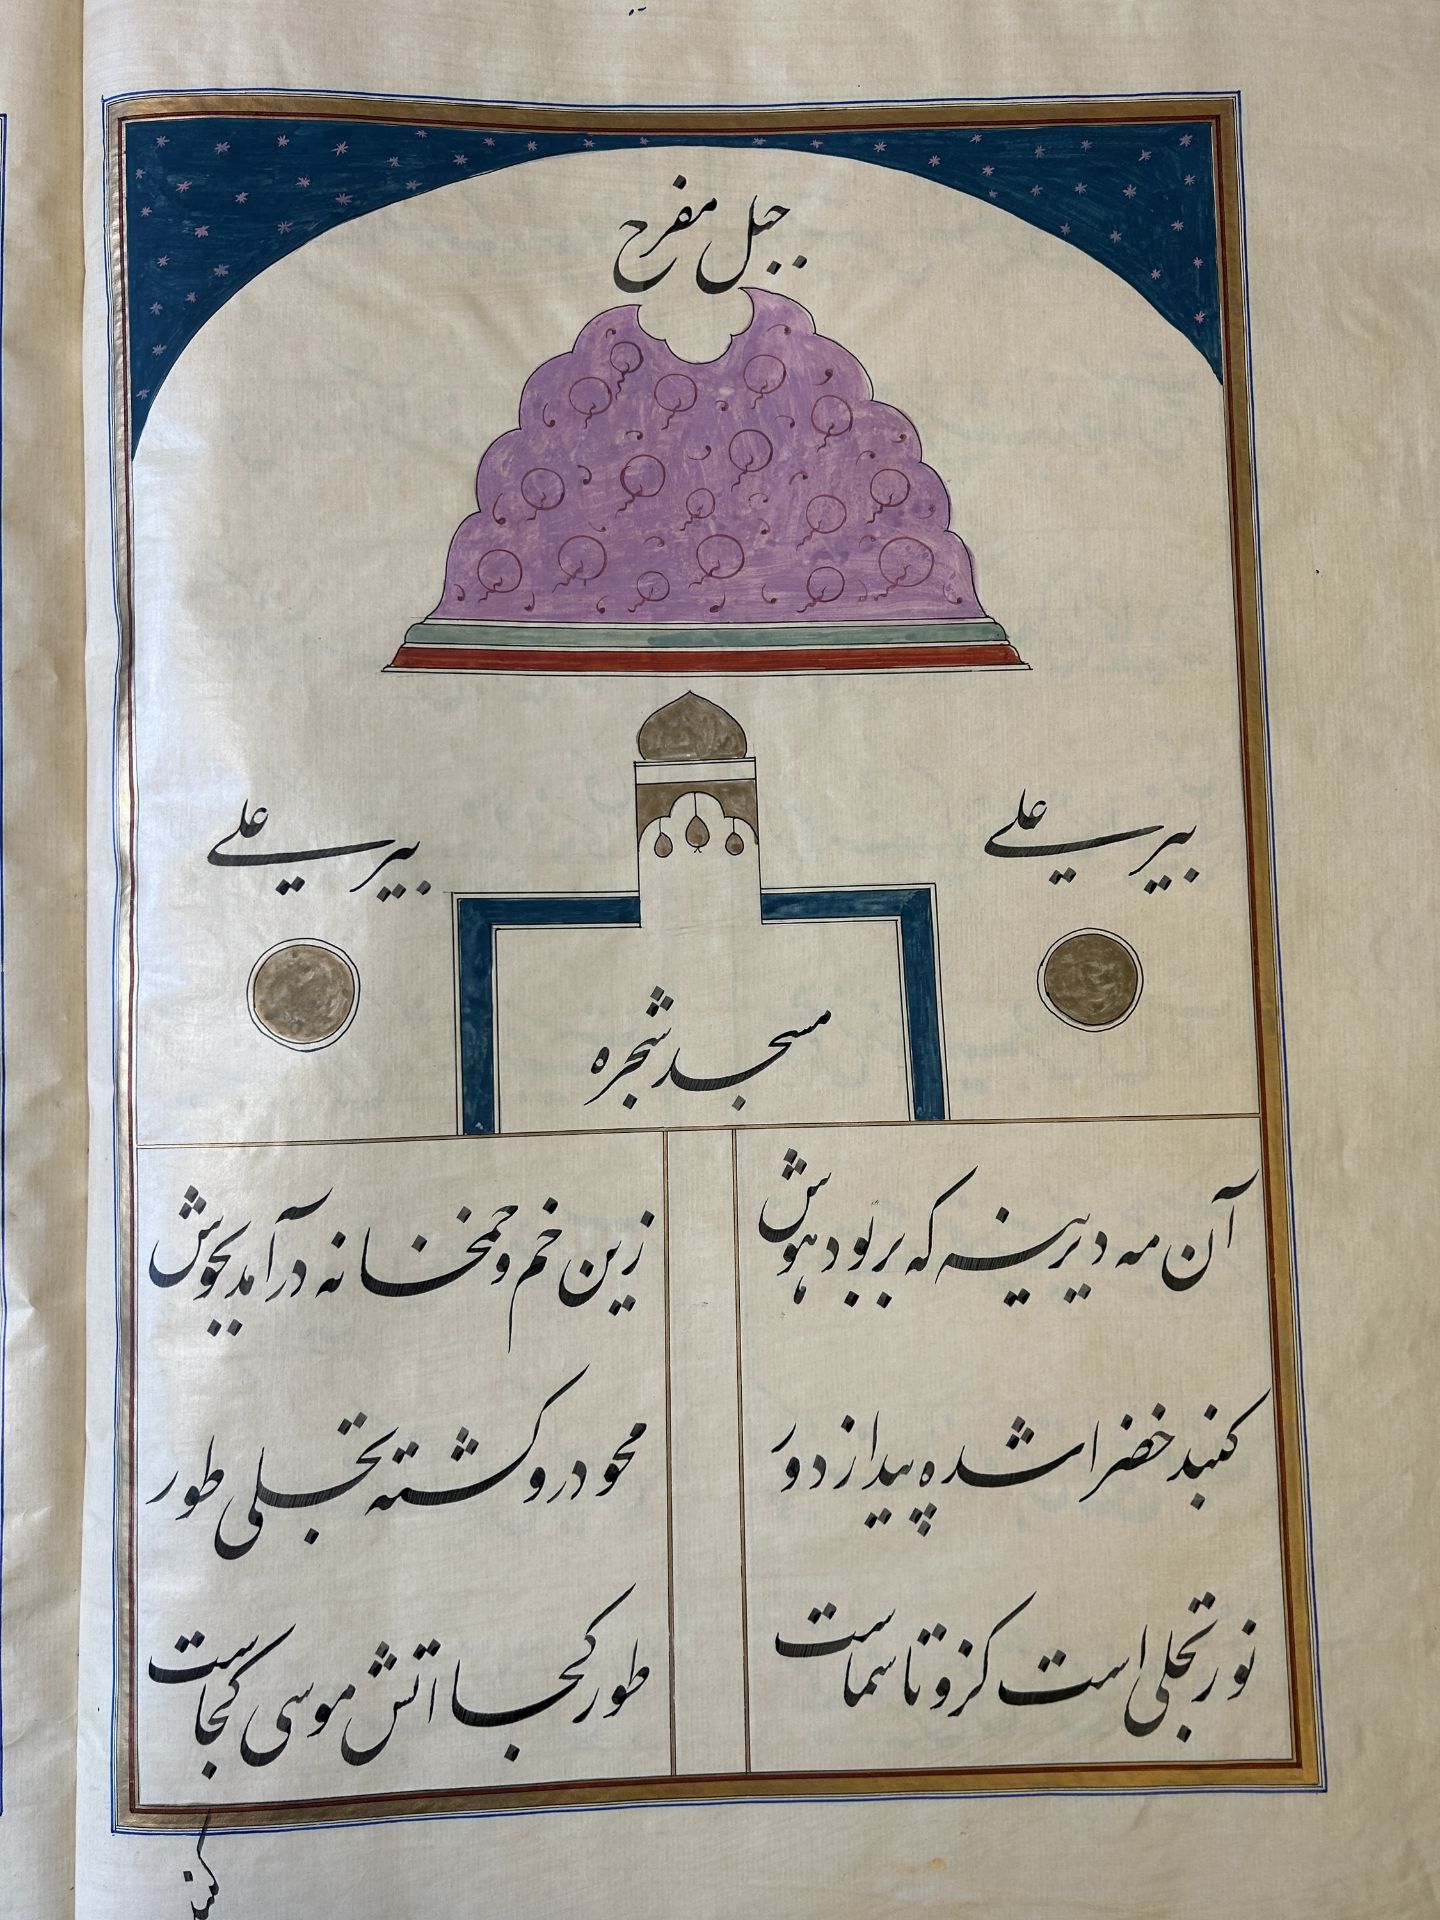 جبل مفرح
بیر علی
بیر علی
مسجد شجره
آن مه دیرینه که بربود هوش
زین خم و خمخانه در آمد بجوش
کنبد خضرا شده پیدا ز دور
محو درو کشته تجلی طور
نور تجلی است کزو تا سماست
طور کجا اتش موسی کجاست
کنبد